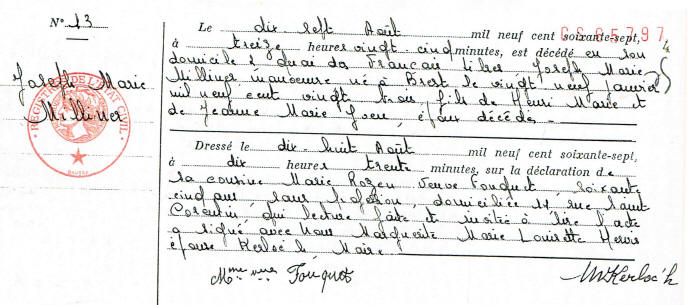 N° 13
Joseph Marie
Milliner
REGISTRES DE L'ÉTAT CIVIL
Le dix sept Août mil neuf cent soixante-sept,
à treize heures vingt cinq minutes, est décédé en son
domicile 2 quai des Français Libres Joseph Marie
Milliner manoeuvre né à Brest le vingt neuf janvier
mil neuf cent vingt trois, fils de Henri Marie et
de Jeanne Marie époux décédés
Dressé le dix huit Août mil neuf cent soixante-sept,
à dix heures trente minutes, sur la déclaration de
sa cousine Marie Rozen Veuve Fouquet, soixante
cinq ans, sans profession, domiciliée 14 rue Saint
Corentin, qui lecture faite et invitée à lire l'acte
a signé avec Nous Marguerite Marie Louisette Hervé
épouse Kerloc'h Maire.
Mme veuve Fouquet
MKerloc'h